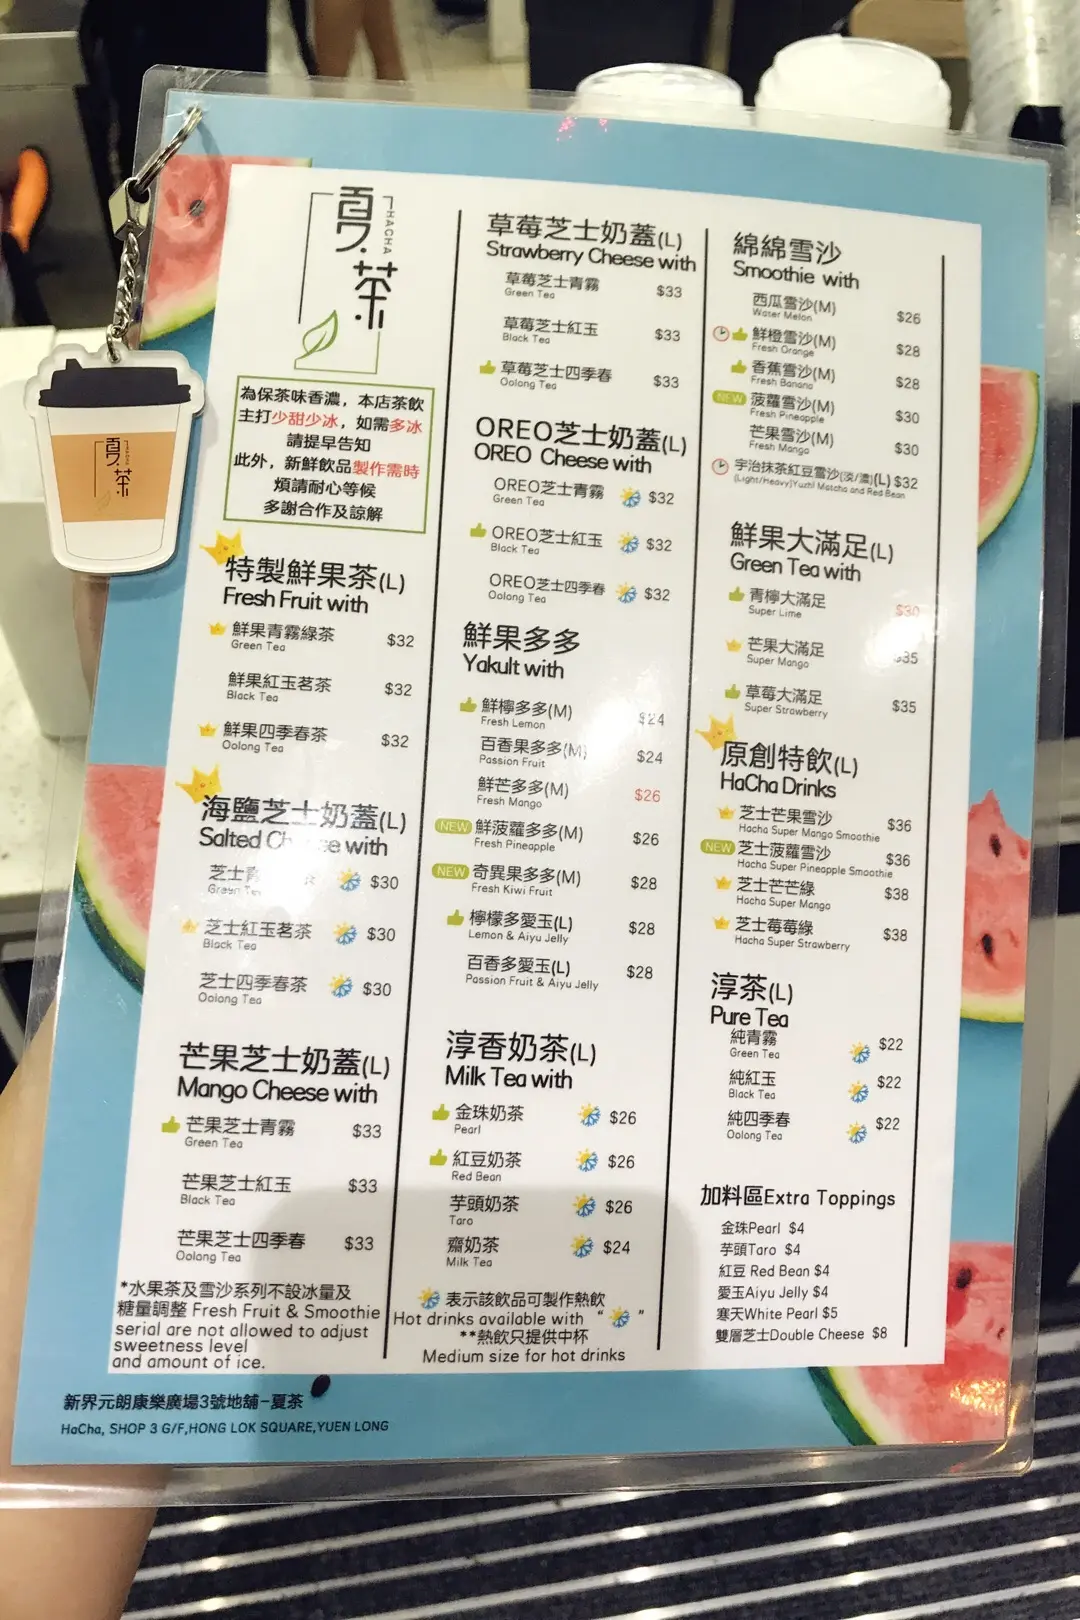 夏茶
HACHA
為保茶味香濃，本店茶飲
主打少甜少冰，如需多冰
請提早告知
此外，新鮮飲品製作需時
煩請耐心等候
多謝合作及諒解
特製鮮果茶(L)
Fresh Fruit with
鮮果青霧綠茶 $32
Green Tea
鮮果紅玉茗茶 $32
Black Tea
鮮果四季春茶 $32
Oolong Tea
海鹽芝士奶蓋(L)
Salted with
芝士青 $30
Green
芝士紅玉茗茶 $30
Black Tea
芝士四季春茶 $30
Oolong Tea
芒果芝士奶蓋(L)
Mango Cheese with
芒果芝士青霧 $33
Green Tea
芒果芝士紅玉 $33
Black Tea
芒果芝士四季春 $33
Oolong Tea
*水果茶及雪沙系列不設冰量及
糖量調整 Fresh Fruit & Smoothie
serial are not allowed to adjust
sweetness level
and amount of ice.
草莓芝士奶蓋(L)
Strawberry Cheese with
草莓芝士青霧 $33
Green Tea
草莓芝士紅玉 $33
Black Tea
草莓芝士四季春 $33
Oolong Tea
OREO芝士奶蓋(L)
OREO Cheese with
OREO芝士青霧 $32
Green Tea
OREO芝士紅玉 $32
Black Tea
OREO芝士四季春 $32
Oolong Tea
鮮果多多
Yakult with
鮮檸多多(M) $24
Fresh Lemon
百香果多多(M) $24
Passion Fruit
鮮芒多多(M) $26
Fresh Mango
NEW 鮮菠蘿多多(M) $26
Fresh Pineapple
NEW 奇異果多多(M) $28
Fresh Kiwi Fruit
檸檬多愛玉(L) $28
Lemon & Aiyu Jelly
百香多愛玉(L) $28
Passion Fruit & Aiyu Jelly
淳香奶茶(L)
Milk Tea with
金珠奶茶 $26
Pearl
紅豆奶茶 $26
Red Bean
芋頭奶茶 $26
Taro
齋奶茶 $24
Milk Tea
表示該飲品可製作熱飲
Hot drinks available with " "
**熱飲只提供中杯
Medium size for hot drinks
綿綿雪沙
Smoothie with
西瓜雪沙(M) $26
Water Melon
鮮橙雪沙(M) $28
Fresh Orange
香蕉雪沙(M) $28
Fresh Banana
NEW 菠蘿雪沙(M) $30
Fresh Pineapple
芒果雪沙(M) $30
Fresh Mango
宇治抹茶紅豆雪沙(淡/濃)(L) $32
(Light/Heavy)Yuzhi Matcha and Red Bean
鮮果大滿足(L)
Green Tea with
青檸大滿足 $30
Super Lime
芒果大滿足 $35
Super Mango
草莓大滿足 $35
Super Strawberry
原創特飲(L)
HaCha Drinks
芝士芒果雪沙 $36
Hacha Super Mango Smoothie
NEW 芝士菠蘿雪沙 $36
Hacha Super Pineapple Smoothie
芝士芒芒綠 $38
Hacha Super Mango
芝士莓莓綠 $38
Hacha Super Strawberry
淳茶(L)
Pure Tea
純青霧 $22
Green Tea
純紅玉 $22
Black Tea
純四季春 $22
Oolong Tea
加料區Extra Toppings
金珠Pearl $4
芋頭Taro $4
紅豆 Red Bean $4
愛玉Aiyu Jelly $4
寒天White Pearl $5
雙層芝士Double Cheese $8
新界元朗康樂廣場3號地舖-夏茶
HaCha, SHOP 3 G/F,HONG LOK SQUARE,YUEN LONG
夏茶